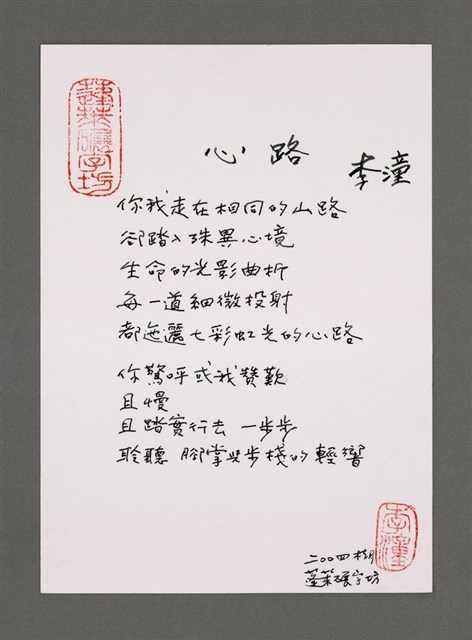 心路
李潼
你我走在相同的山路
卻踏入殊異心境
生命的光影曲折
每一道細微投射
都迤邐七彩虹光的心路
你驚呼或我贊歎
且慢
且踏實行去 一步步
聆聽 腳掌與步棧的輕響
二〇〇四
字坊
李潼